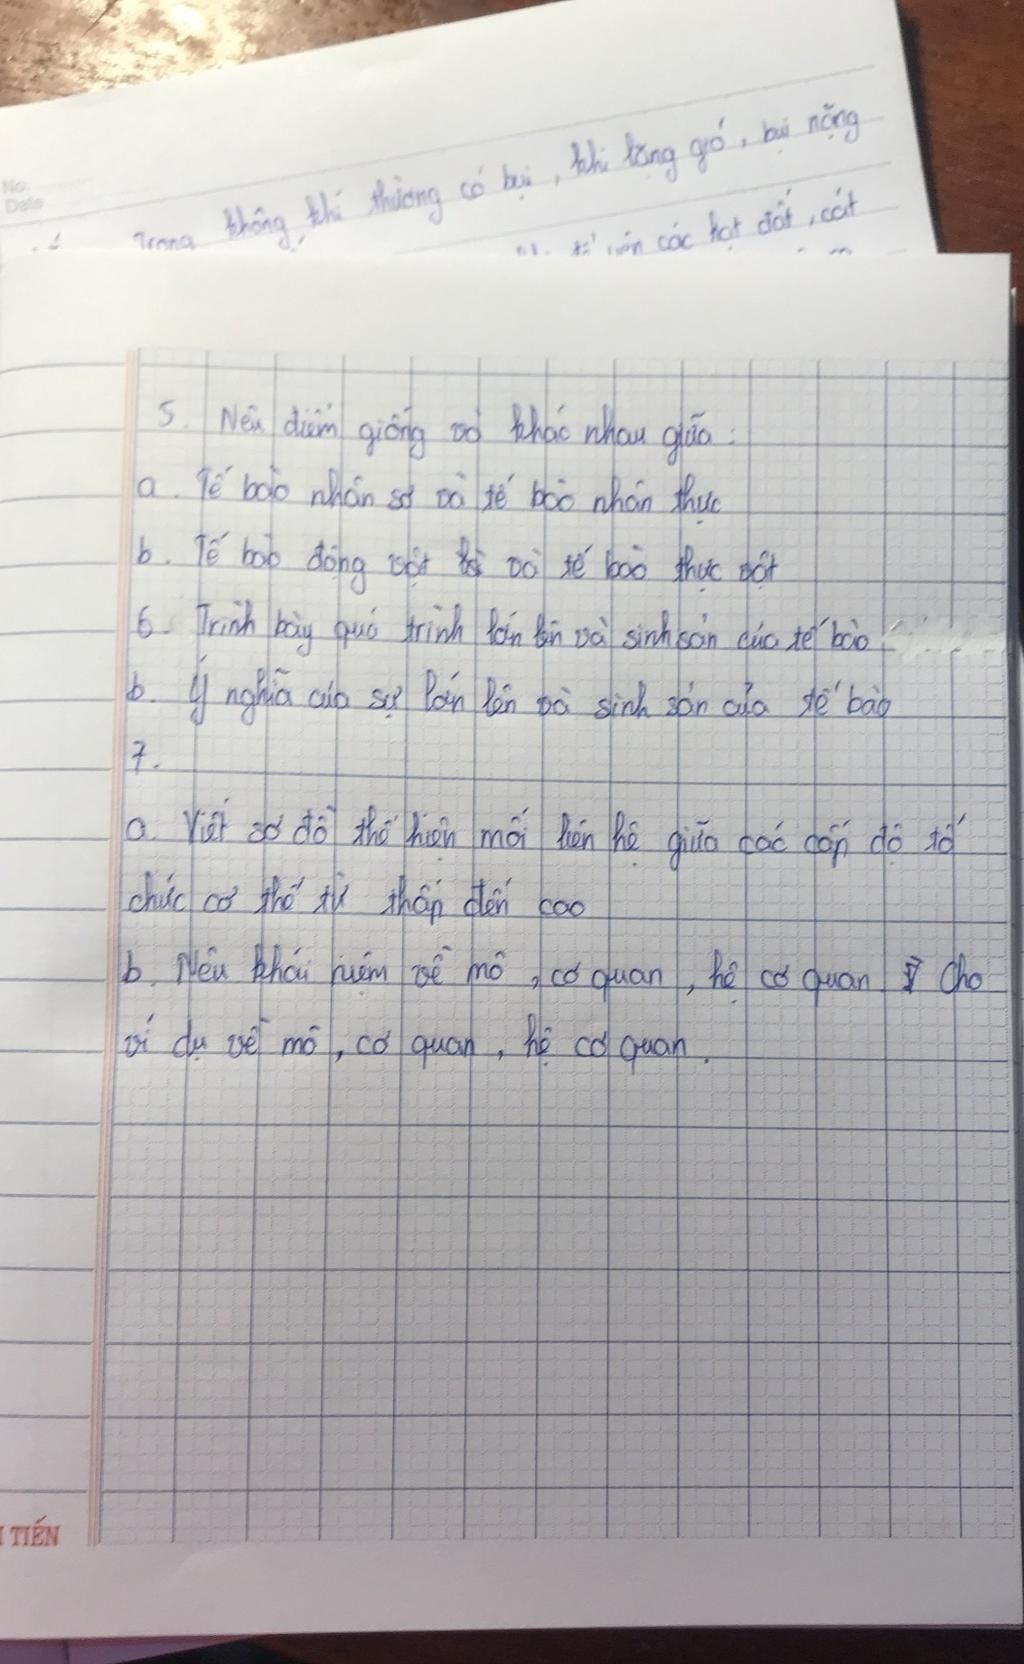 No.
Date
Trong không khí thường có bụi, khi lặng gió, bụi nặng
các hạt đất, cát
5. Nêu điểm giống và khác nhau giữa:
a. Tế bào nhân sơ và tế bào nhân thực
b. Tế bào động vật và tế bào thực vật
6. Trình bày quá trình lớn lên và sinh sản của tế bào
b. Ý nghĩa của sự lớn lên và sinh sản của tế bào
7.
a. Viết sơ đồ thể hiện mối liên hệ giữa các cấp độ tổ
chức cơ thể từ thấp đến cao
b. Nêu khái niệm về mô, cơ quan, hệ cơ quan. Cho
ví dụ về mô, cơ quan, hệ cơ quan.
TIẾN